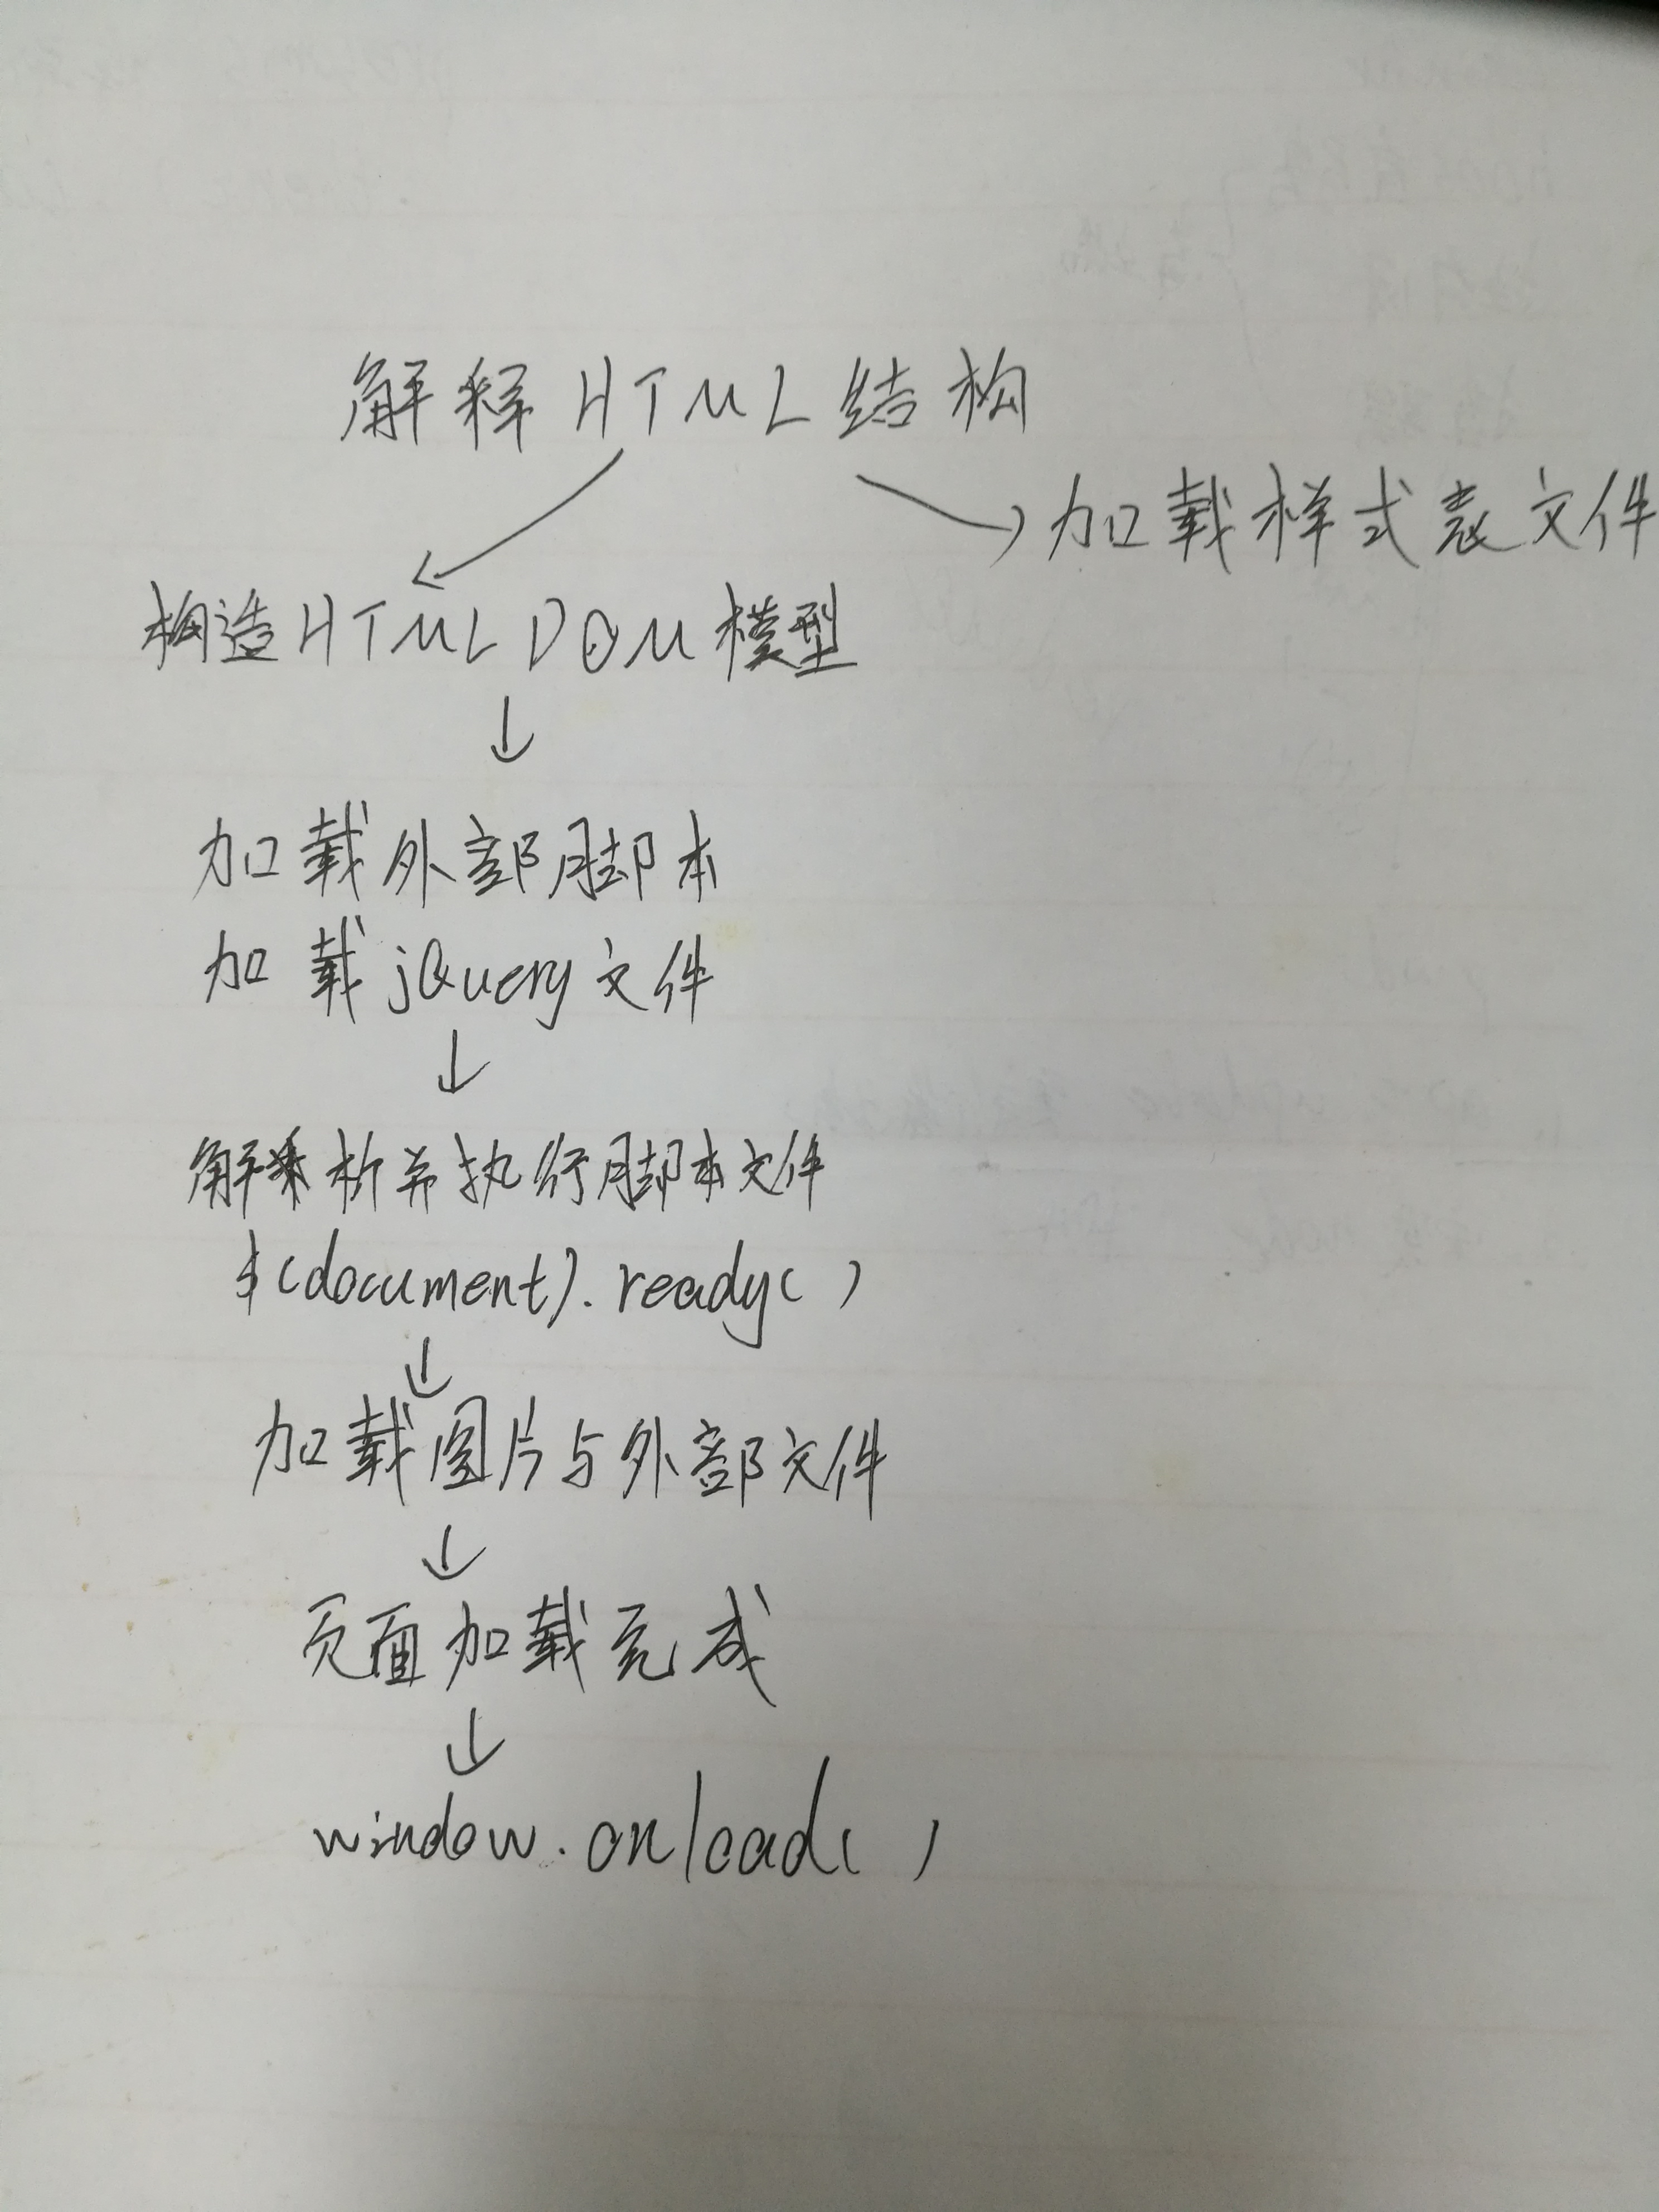 解释HTML结构
加载样式表文件
构造HTML DOM模型
加载外部脚本
加载jQuery文件
解析并执行脚本文件
$(document).ready()
加载图片与外部文件
页面加载完成
window.onload()